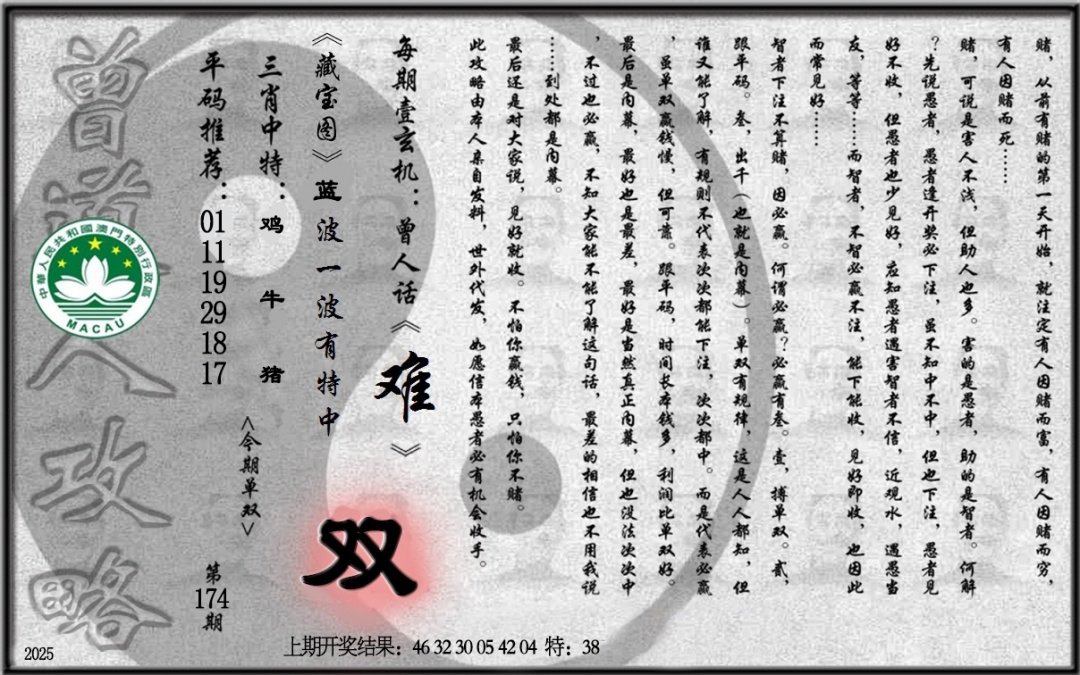 赌，从前有赌的第一天开始，就注定有人因赌而富，有人因赌而穷，
有人因赌而死……
赌，可说是害人不浅，但助人也多。害的是愚者，助的是智者。何解
？先说愚者，愚者逢开奖必下注，虽不知中不中，但也下注，愚者见
好不收，但愚者也少见好，应知愚者遇害智者不信，近观水，遇愚当
友，等等……而智者，不智必赢不注，能下能收，见好即收，也因此
而常见好……
智者下注不算赌，因必赢。何谓必赢？必赢有叁。壹，搏单双。贰，
跟平码。叁，出千（也就是内幕）。单双有规律，这是人人都知，但
谁又能了解，有规则不代表次次都能下注，次次都中。而是代表必赢
，虽单双赢钱慢，但可靠。跟平码，时间长本钱多，利润比单双好。
最后是内幕，最好也是最差，最好是当然真正内幕，但也没法次次中
，不过也必赢，不知大家能不能了解这句话，最差的相信也不用我说
……到处都是内幕。
最后还是对大家说，见好就收。不怕你赢钱，只怕你不赌。
此攻略由本人亲自发料，世外代发，如愿信本愚者必有机会收手。
每期壹玄机：曾人话《难》
《藏宝图》蓝波一波有特中
双
三肖中特：鸡 牛 猪
<今期单双>
平码推荐：01 11 19 29 18 17
第174期
曾道人攻略
中華人民共和國澳門特別行政區
MACAU
2025
上期开奖结果：46 32 30 05 42 04 特：38